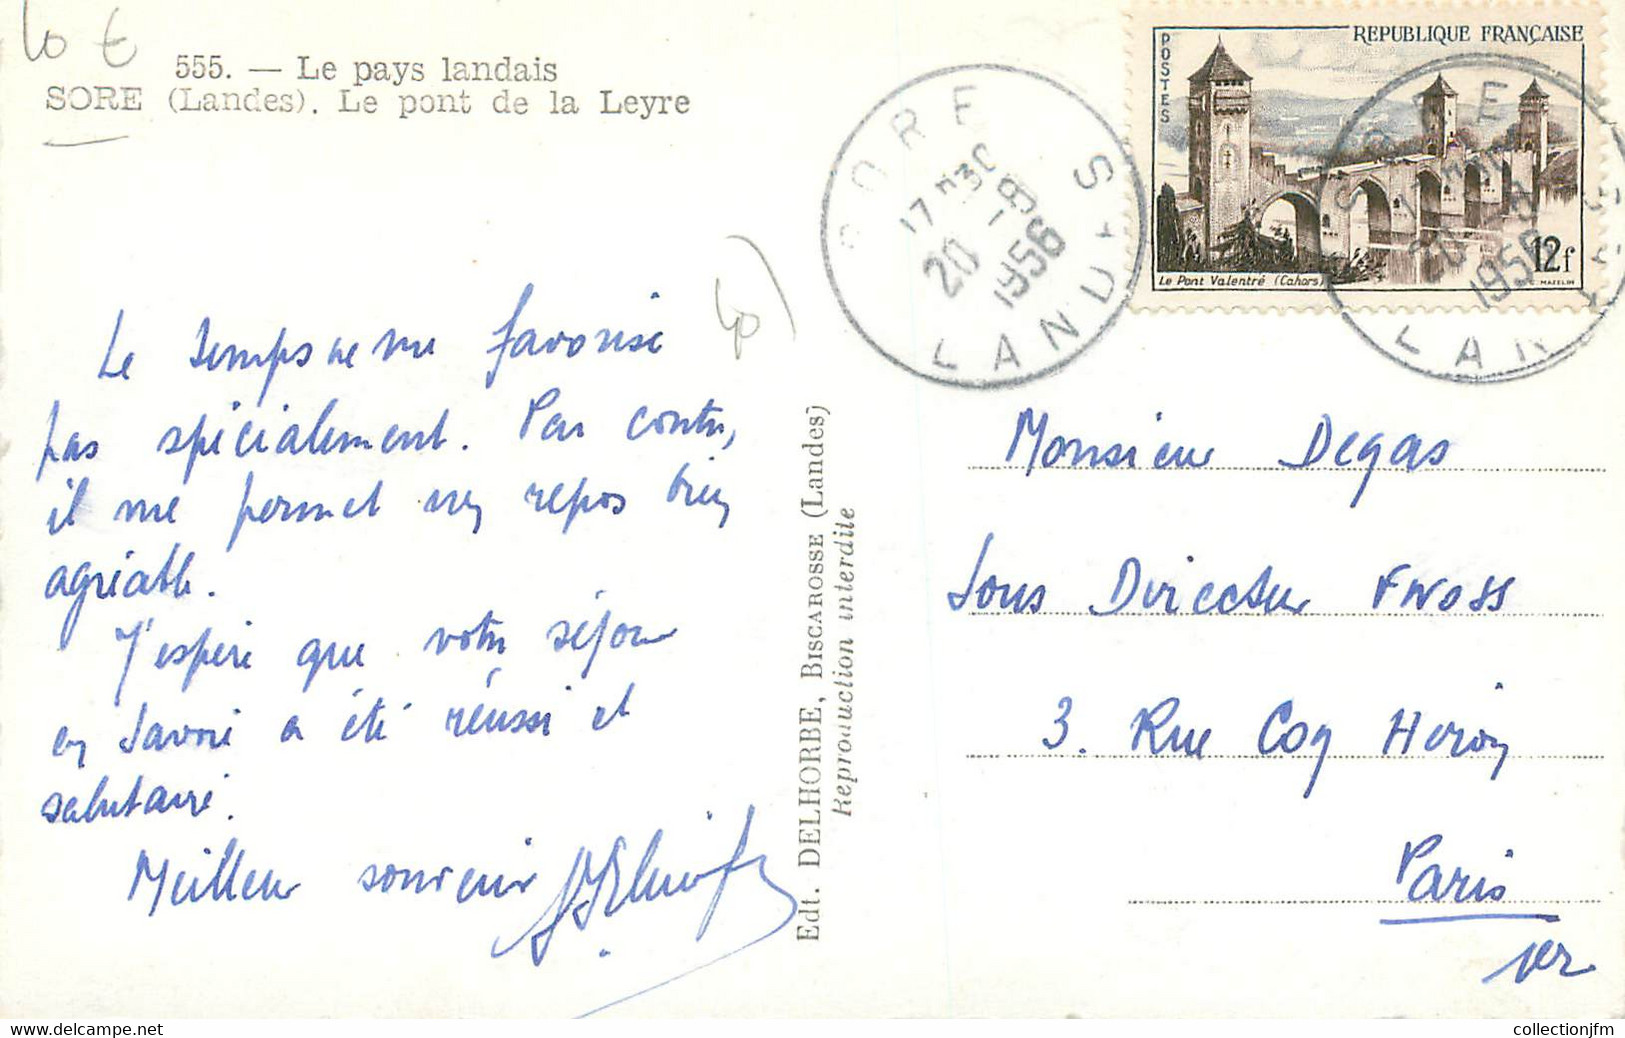 10 €
555. — Le pays landais
SORE (Landes). Le pont de la Leyre
REPUBLIQUE FRANÇAISE
POSTES
Le Pont Valentré (Cahors)
12f
C. MAZELIN
SORE
17 H30
20 -8
1956
LANDES
SORE
17 H30
20 -8
1956
LANDES
Le temps ne me favorise
pas spécialement. Par contre,
il me permet un repos bien
agréable.
J'espère que votre séjour
en Savoie a été réussi et
salutaire.
Meilleur souvenir
Edt. DELHORBE, BISCAROSSE (Landes)
Reproduction interdite
Monsieur Degas
Sous Directeur FNOSS
3. Rue Coq Héron
Paris
1er
collectionjfm